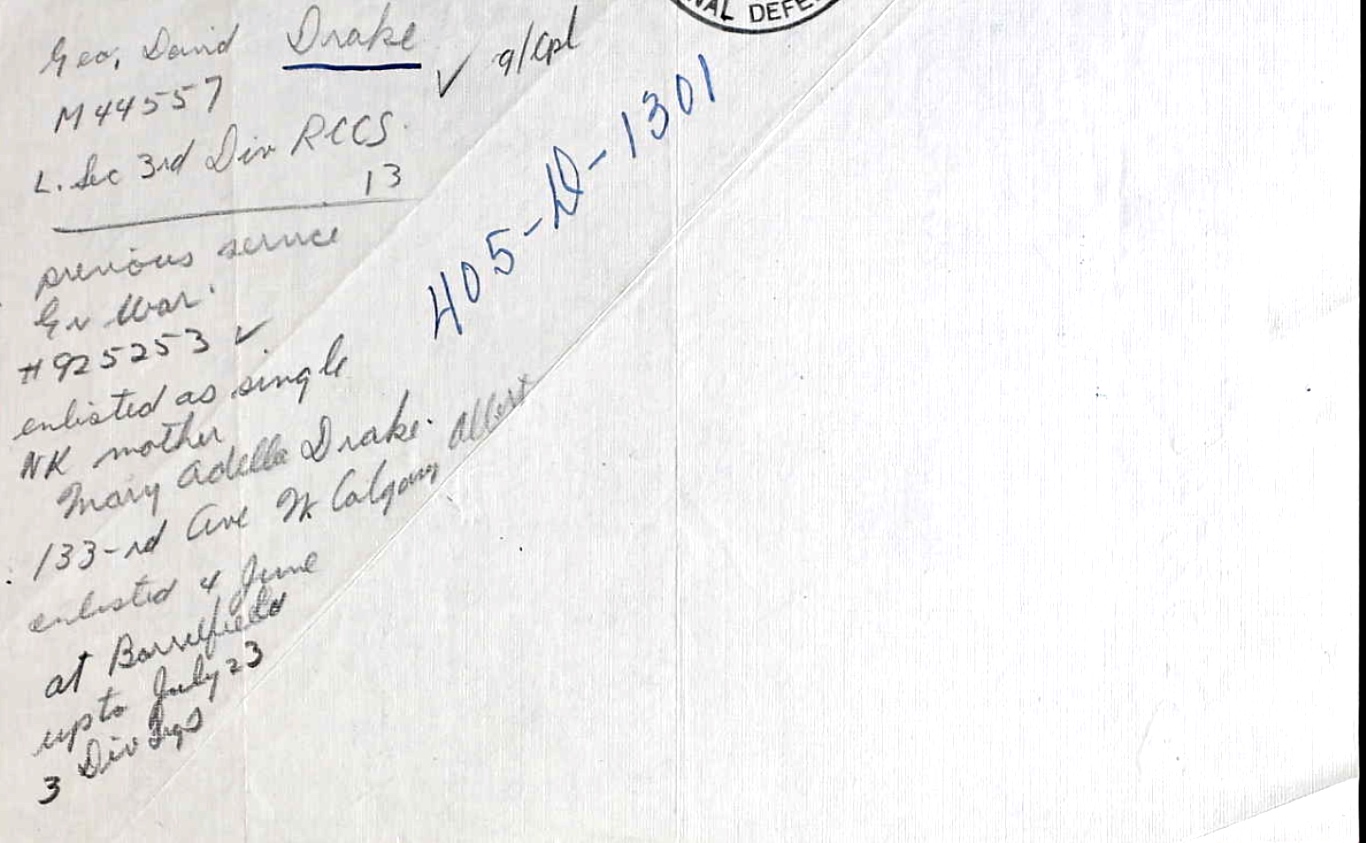 NAL DEFE
Geo, David Drake
✓ a/Cpl
M44557
L. Sec 3rd Div RCCS.
13
405-D-1301
previous service
Gr War.
#925253 ✓
enlisted as single
NK mother
Mary Adella Drake.
133-rd Ave W Calgary Albert
enlisted 4 June
at Barriefield
upto July 23
3 Div Sigs